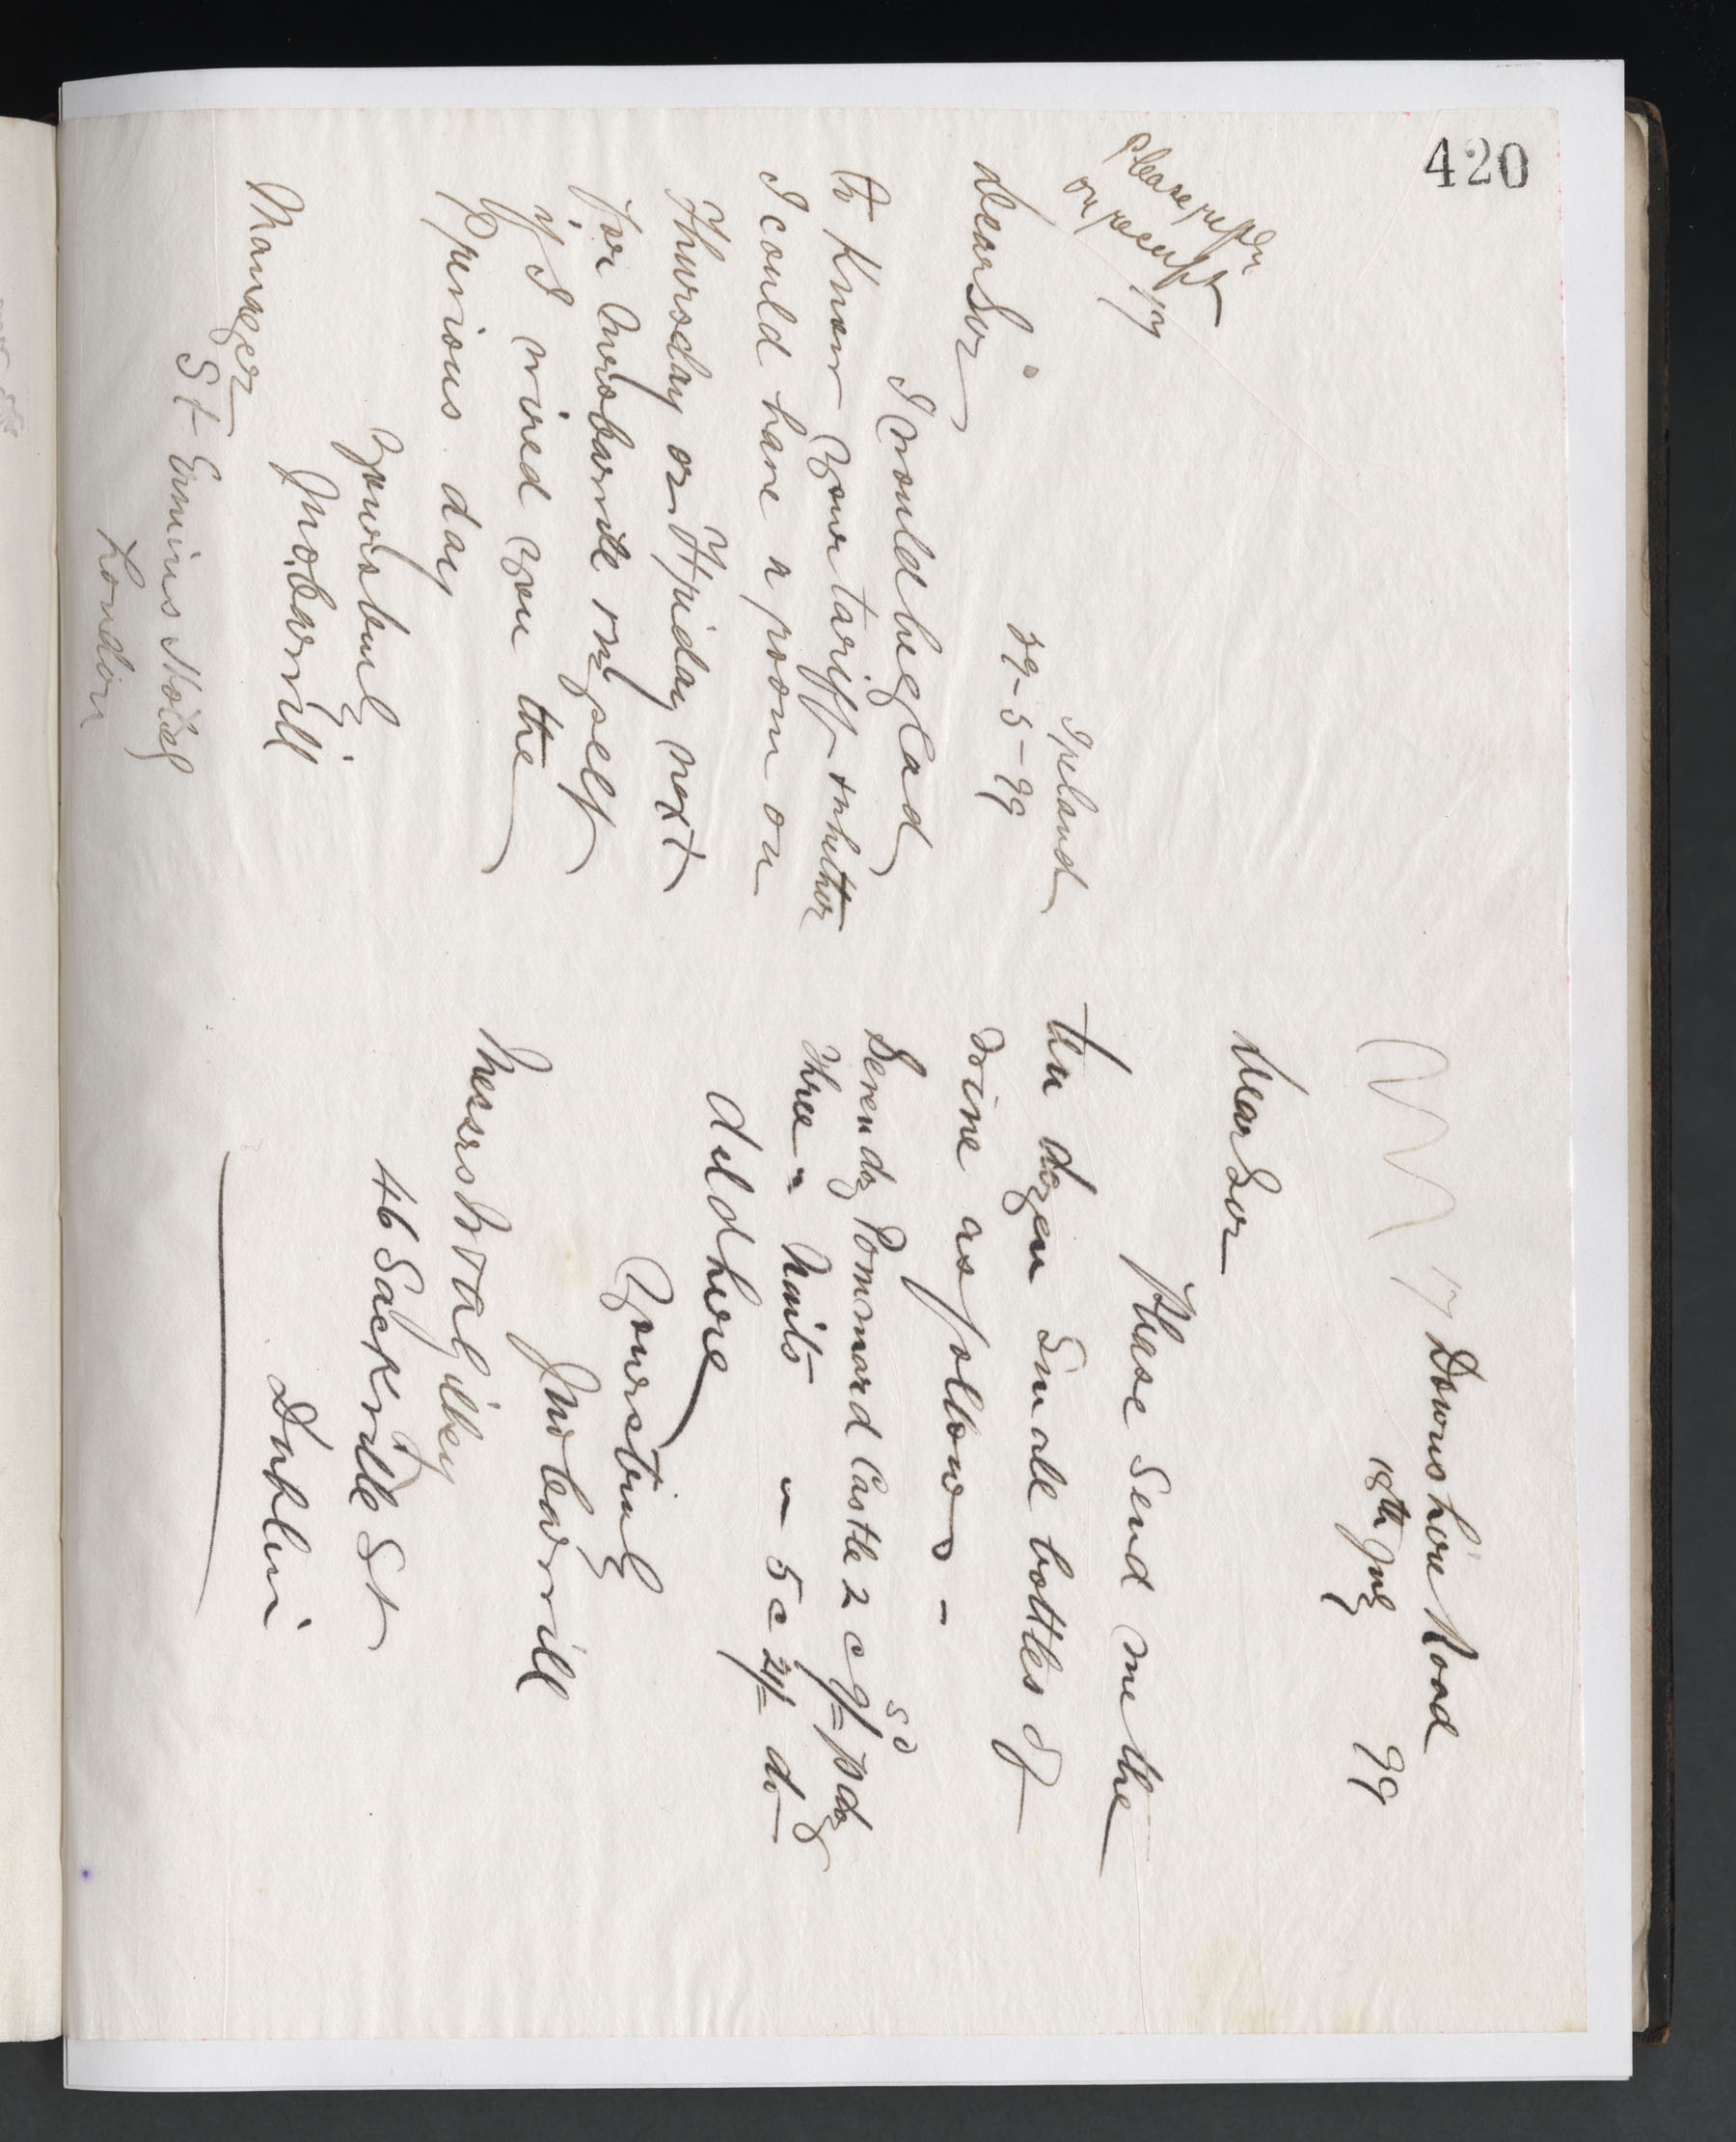 420
Please reply
on receipt
17
Ireland
29-5-99
Dear Sir
I would be glad
to know your tariff & whether
I could have a room on
Thursday or Friday next
for Mrs Barrill & myself
if I wired you the
previous day
Yours truly
Jno Barrill
Manager
St Ermins Hotel
London
17 Downshire Road
18th July 99
Dear Sir
Please send me the
ten dozen small bottles of
wine as follows -
Seven doz Pommard Castle 2 c 9/= p doz
s d
Three " Nuits " 5 c 21/= do
deld here
Yours truly
Jno Barrill
Messrs W & A Gilbey
46 Sackville St
Dublin